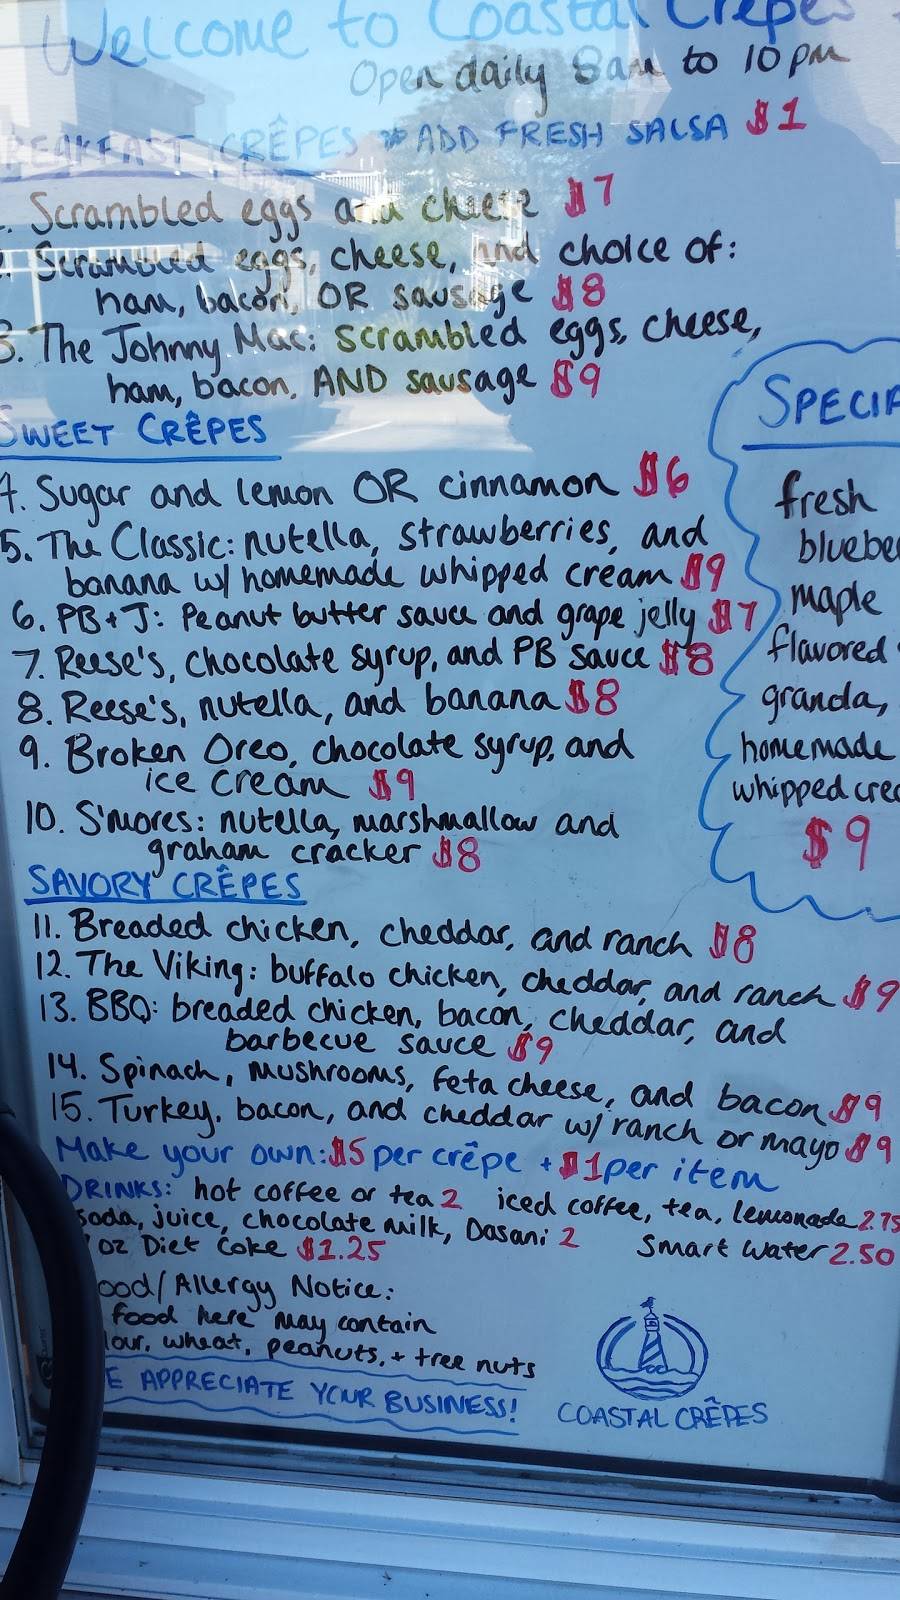 Welcome to Coastal Crêpes
Open daily 8am to 10pm
BREAKFAST CRÊPES * ADD FRESH SALSA $1
1. Scrambled eggs and cheese $7
2. Scrambled eggs, cheese, and choice of:
ham, bacon, OR sausage $8
3. The Johnny Mac: scrambled eggs, cheese,
ham, bacon, AND sausage $9
SWEET CRÊPES
4. Sugar and lemon OR cinnamon $6
5. The Classic: nutella, strawberries, and
banana w/ homemade whipped cream $9
6. PB+J: Peanut butter sauce and grape jelly $7
7. Reese's, chocolate syrup, and PB sauce $8
8. Reese's, nutella, and banana $8
9. Broken Oreo, chocolate syrup, and
ice cream $9
10. S'mores: nutella, marshmallow and
graham cracker $8
SPECIA
fresh
bluebe
maple
flavored
granola,
homemade
whipped crea
$9
SAVORY CRÊPES
11. Breaded chicken, cheddar, and ranch $8
12. The Viking: buffalo chicken, cheddar, and ranch $9
13. BBQ: breaded chicken, bacon, cheddar, and
barbecue sauce $9
14. Spinach, mushrooms, feta cheese, and bacon $9
15. Turkey, bacon, and cheddar w/ ranch or mayo $9
Make your own: $5 per crêpe + $1 per item
DRINKS: hot coffee or tea 2 iced coffee, tea, lemonade 2.75
soda, juice, chocolate milk, Dasani 2
oz Diet Coke $1.25 Smart Water 2.50
ood/Allergy Notice:
food here may contain
lour, wheat, peanuts, + tree nuts
E APPRECIATE YOUR BUSINESS!
COASTAL CRÊPES